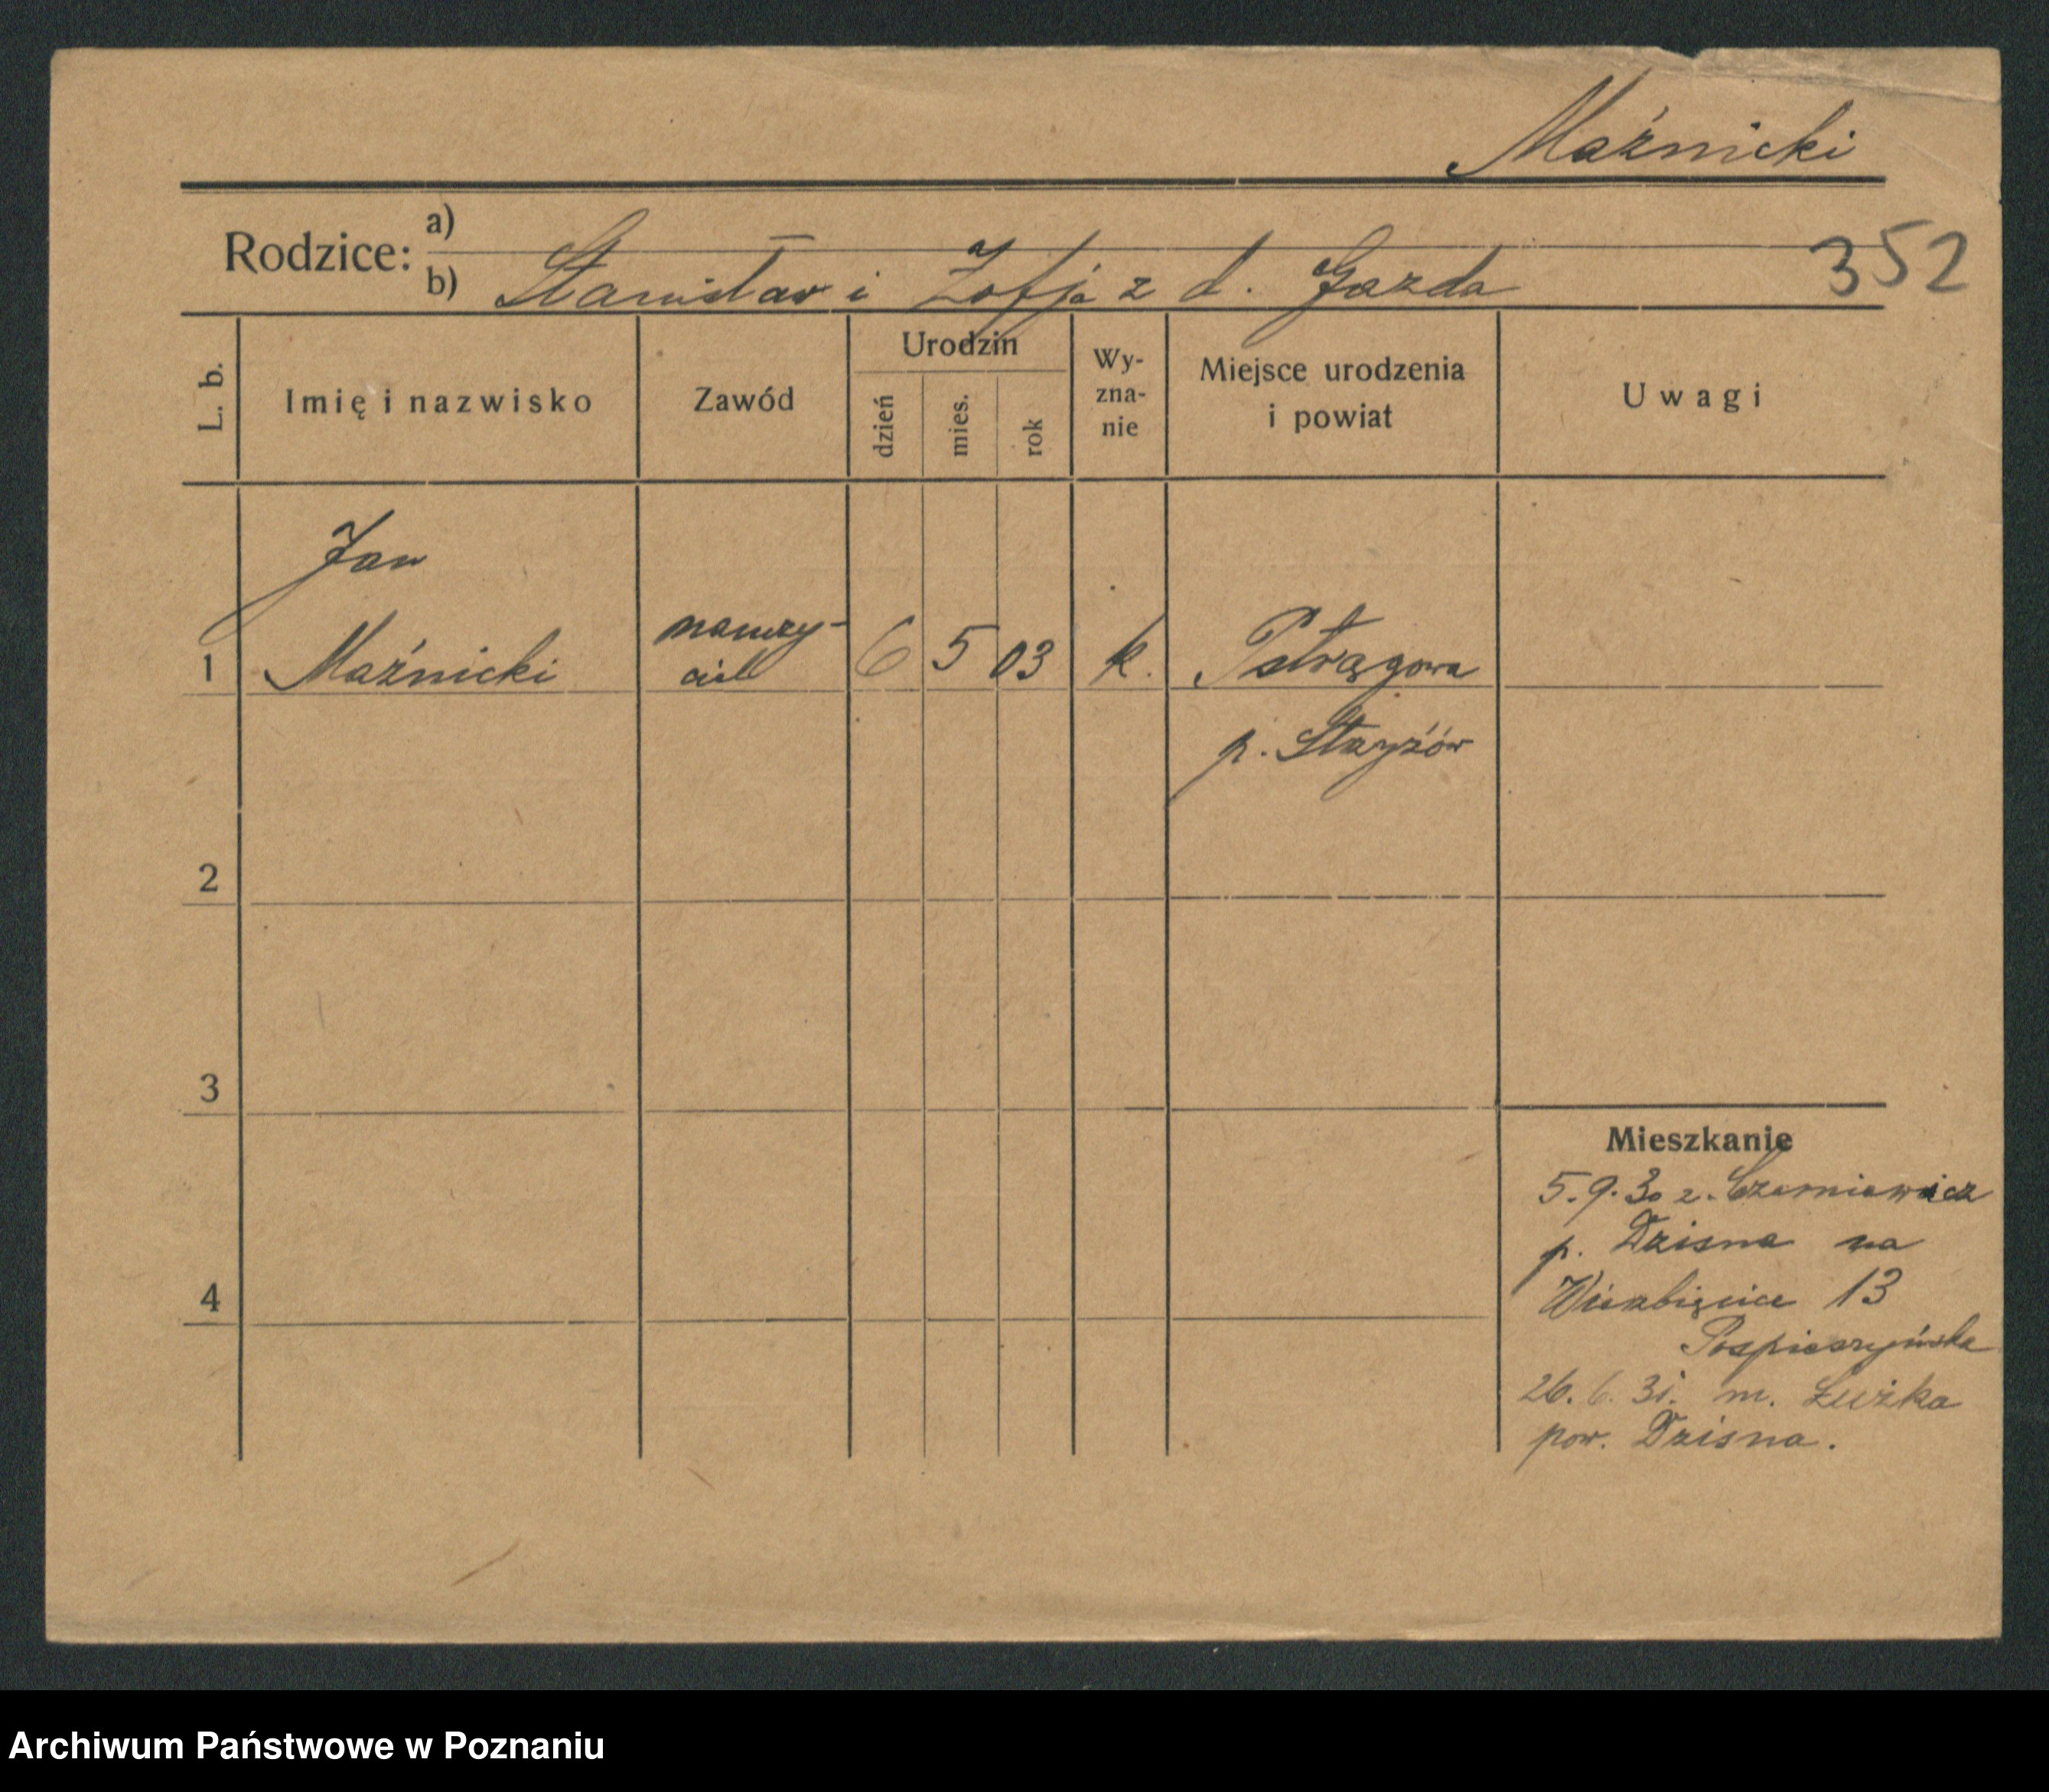 Maźnicki
Rodzice: a)
b) Stanisław i Zofja z d. Gazda
352
L. b.
Imię i nazwisko
Zawód
Urodzin
dzień
mies.
rok
Wy-
zna-
nie
Miejsce urodzenia
i powiat
Uwagi
Jan
1 Maźnicki
nauczy-
ciel
6 5 03 k. Pstrągowa
p. Stryżów
2
3
4
Mieszkanie
5.9.30 z. Czerniewicz
p. Dzisna na
Wierzbięcice 13
26. 6. 31. m. Łużka
pow. Dzisna.
Archiwum Państwowe w Poznaniu